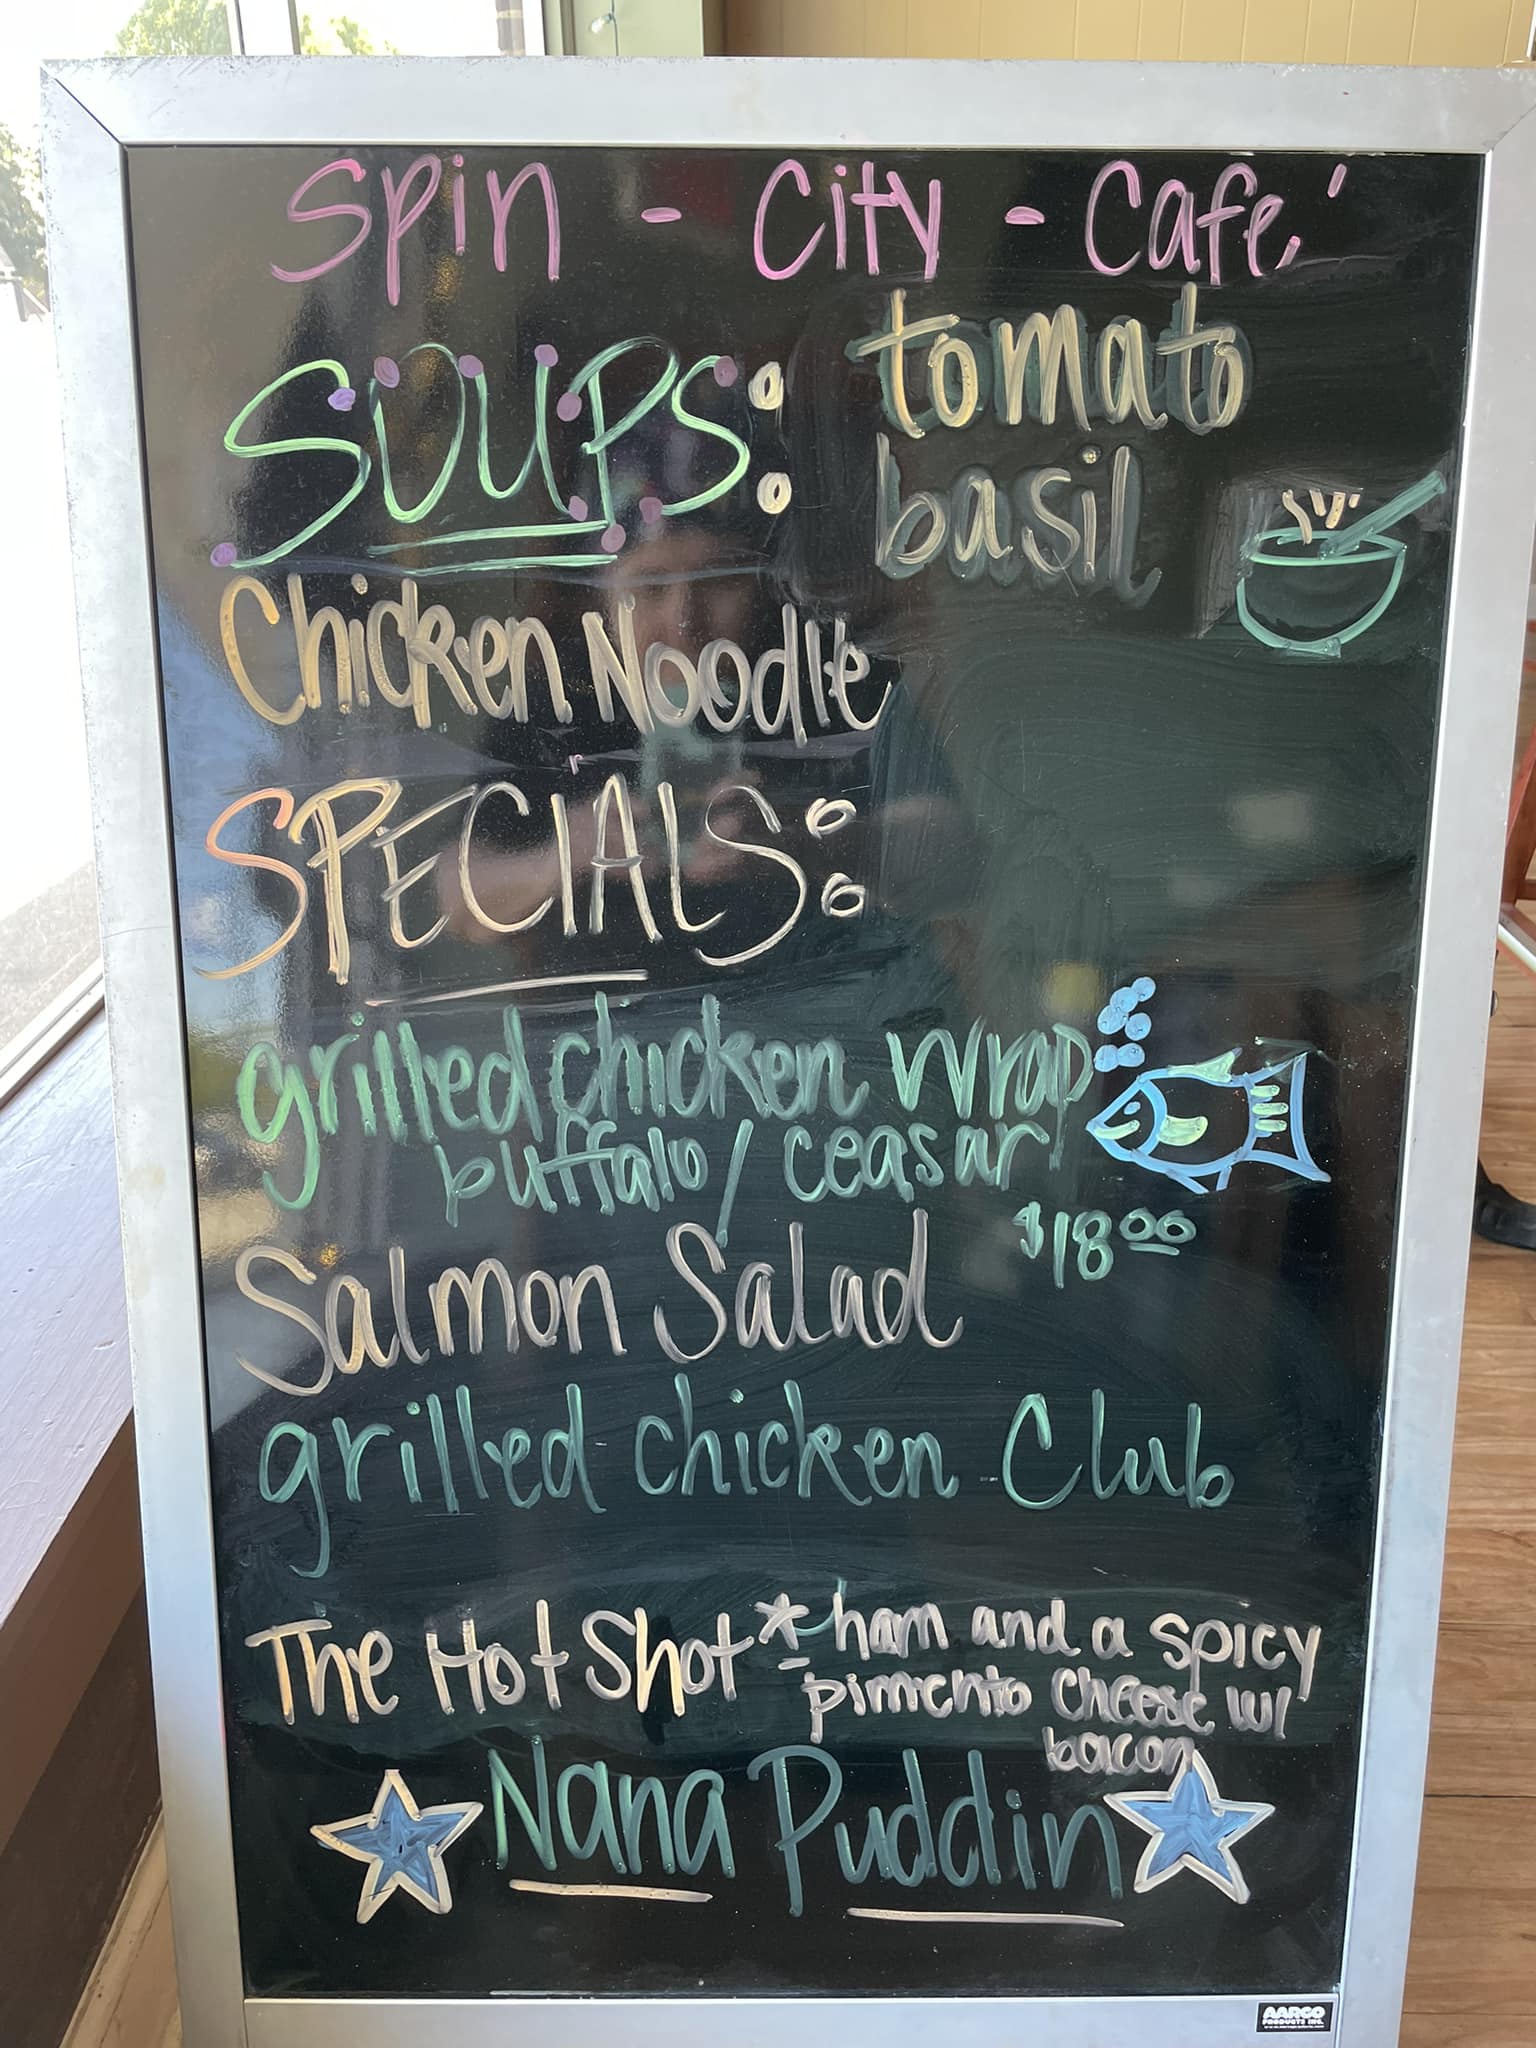 Spin - City - Cafe'
SOUPS: tomato
basil
Chicken Noodle
SPECIALS:
grilled chicken wrap
buffalo / ceasar
$18.00
Salmon Salad
grilled chicken Club
The Hot Shot * ham and a spicy
pimento cheese w/
bacon
Nana Puddin
AARCO
PRODUCTS INC.